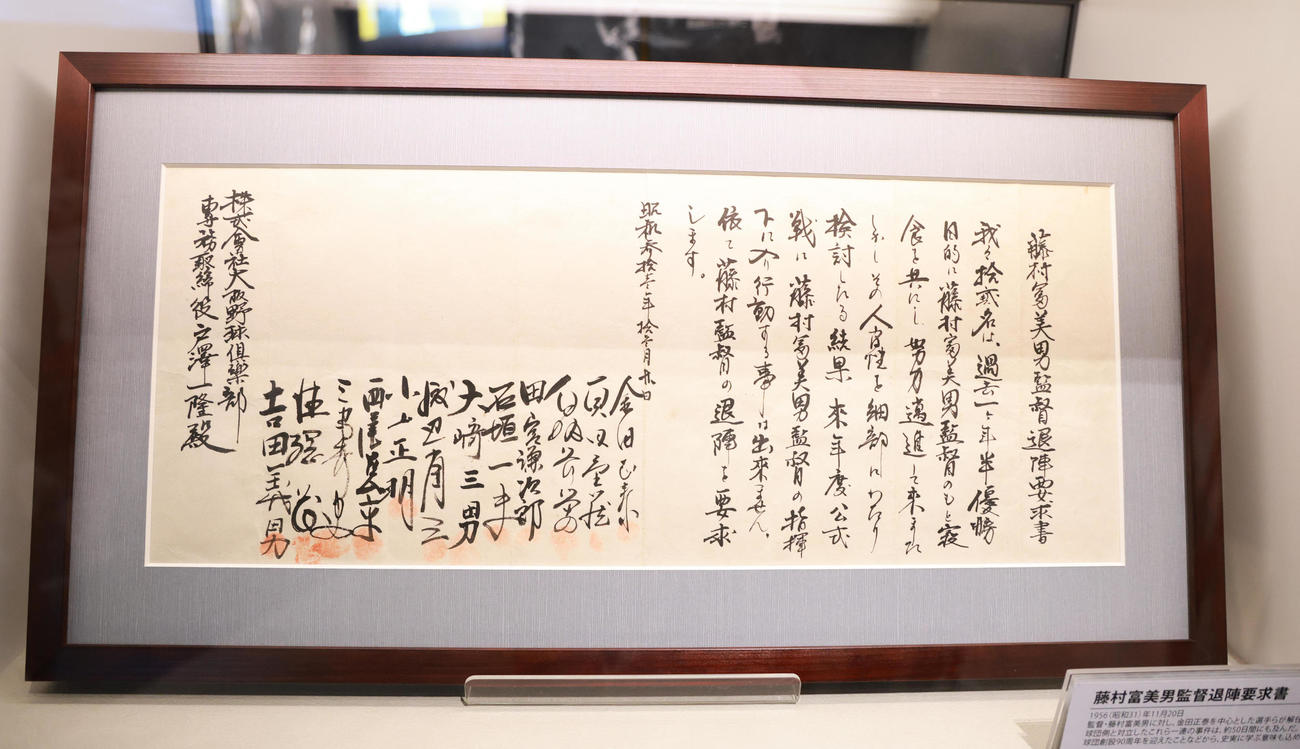 藤村冨美男監督退陣要求書
我々拾弐名は、過去一ヶ年半優勝
目的に藤村冨美男監督のもと寝
食を共にし努力邁進して来ました
しかしその人間性を細部にわたり
検討したる結果来年度公式
戦に藤村冨美男監督の指揮
下に入り行動する事は出来ません。
依て藤村監督の退陣を要求
します。
昭和参拾壱年拾壱月廿日
金田正泰
真田重蔵
田宮謙次郎
石垣一夫
大崎三男
小山正明
吉田義男
株式会社大阪野球倶楽部
専務取締役戸澤一隆殿
藤村富美男監督退陣要求書
1956(昭和31)年11月20日
監督・藤村富美男に対し、金田正泰を中心とした選手らが解任
球団側と対立したこれら一連の事件は、約50日間にも及んだ。
球団創設90周年を迎えたことなどから、史実に学ぶ意味も込め